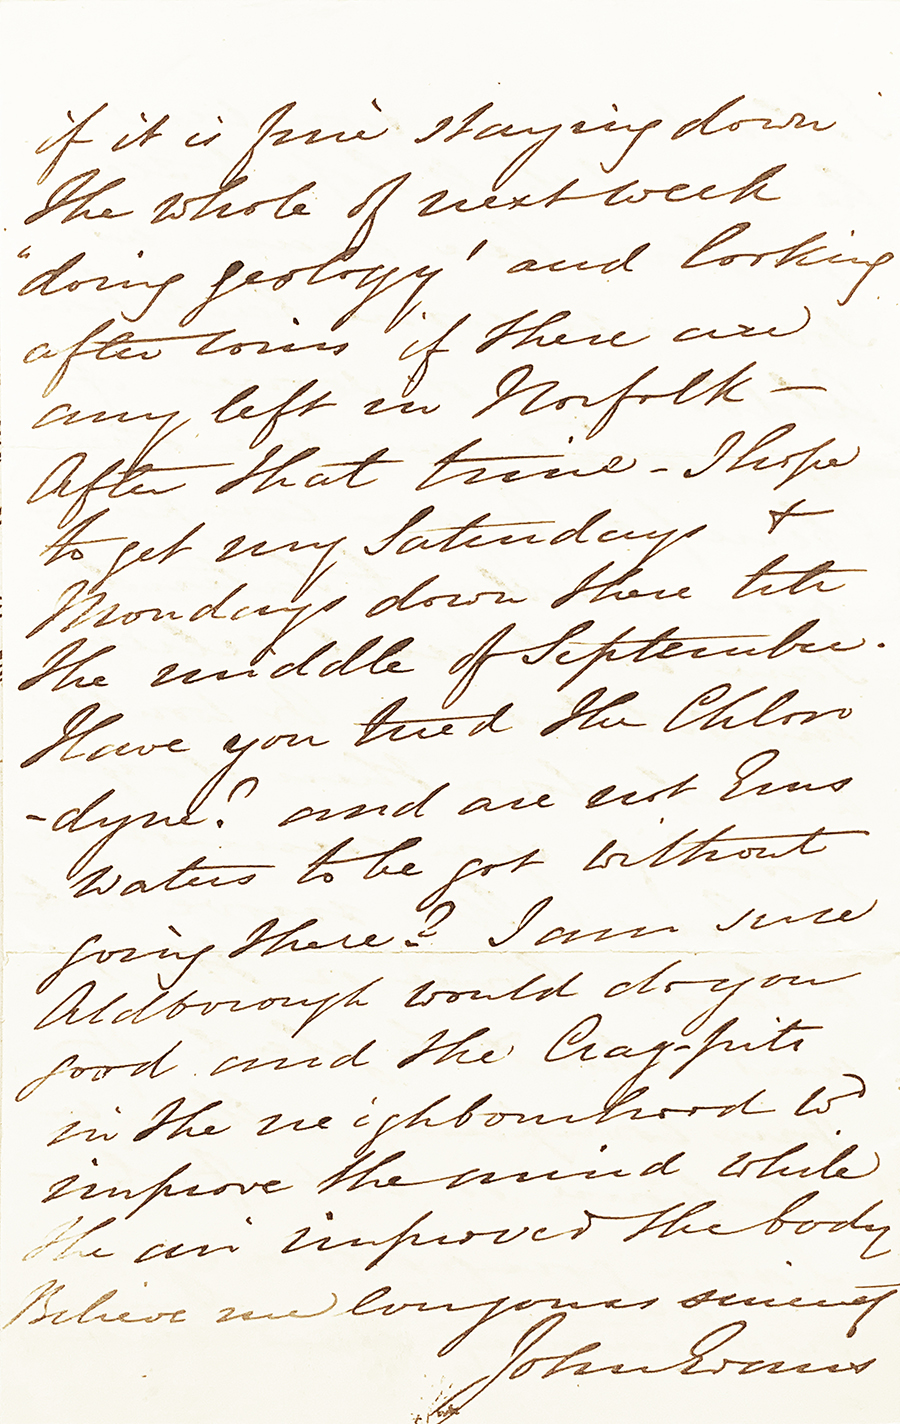 if it is fine staying down
the whole of next week
"doing geology' and looking
after coins if there are
any left in Norfolk –
After that time – I hope
to get my Saturdays &
Mondays down there till
the middle of September.
Have you tried the Chloro
-dyne? and are not Ems
waters to be got without
going there? I am sure
Aldborough would do you
good and the Crag-pits
in the neighbourhood wd
improve the mind while
the air improved the body
Believe me ever yours sincerely
John Evans